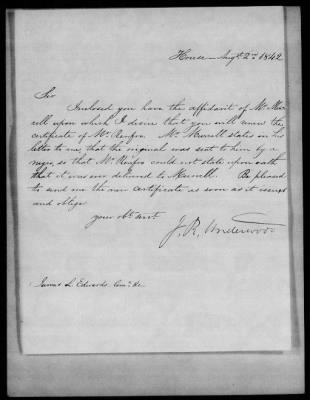 House Augt. 2nd 1842
Sir
Inclosed you have the affidavit of Mr
upon which I desire that you will renew the
certificate of Mr. Renfro. Mr. Murrell states in his
letter to me, that the original was sent to him by a
negro, so that Mr. Renfro could not state upon oath
that it was ever delivered to Murrell. Be pleased
to send me the new certificate as soon as it issues
and oblige
your obt. svt
J. R. Underwood
James L. Edwards Comr. &c.